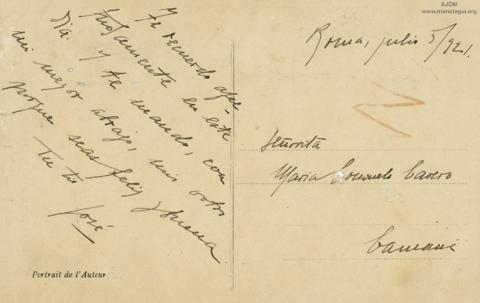 AJCM
www.mariategui.org
Roma, julio 5/921.
Y te recuerdo afec
tuosamente en este
día y te mando, con
mi mejor abrazo, mis votos
porque seas feliz y buena
Tu tío
José
Señorita
Maria Consuelo Cavero
Camaná
Portrait de l'Auteur.